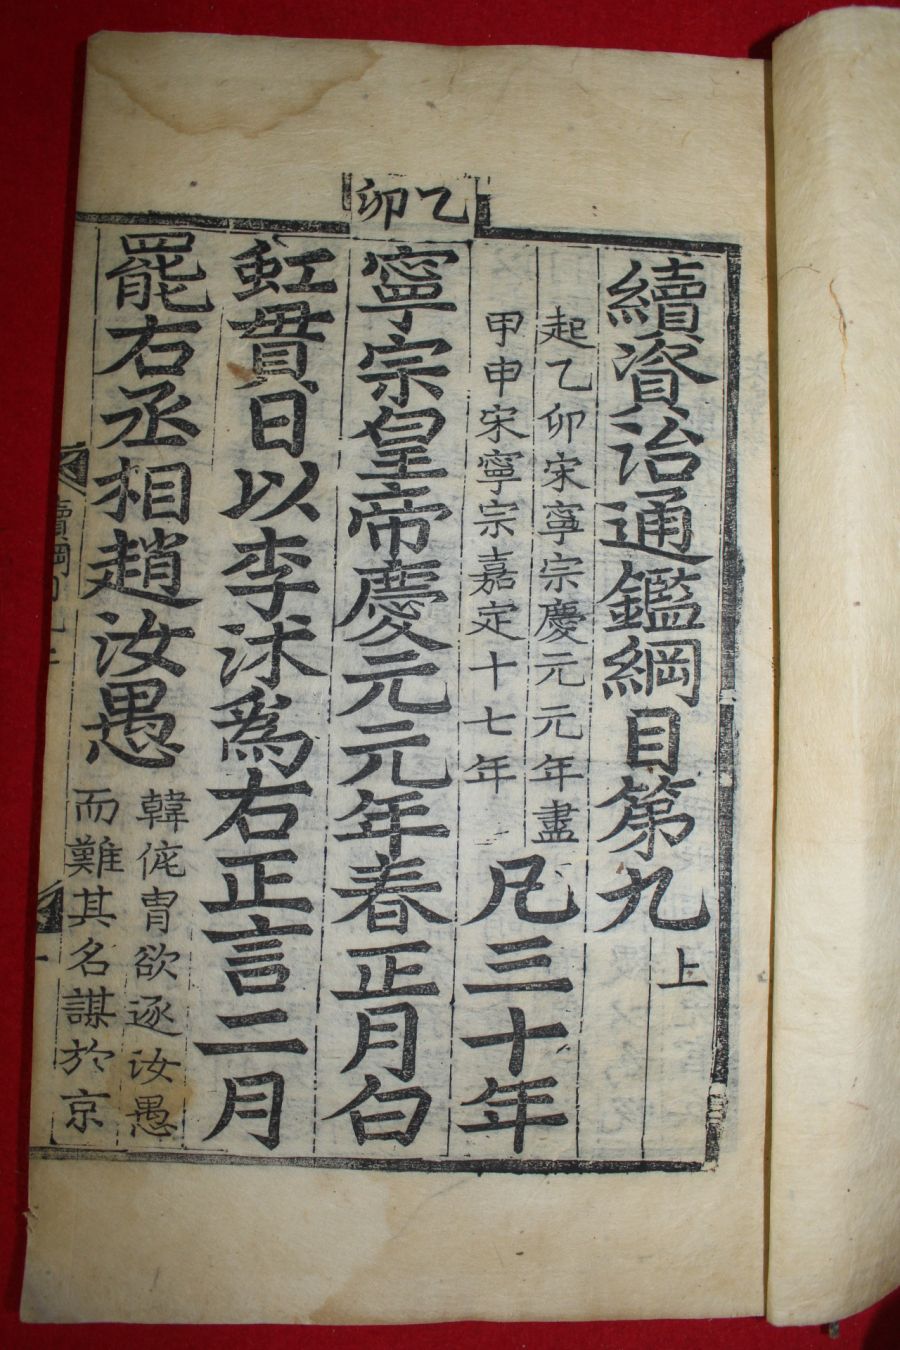 續資治通鑑綱目第九上
起乙卯宋寧宗慶元元年盡
甲申宋寧宗嘉定十七年
凡三十年
乙卯
寧宗皇帝慶元元年春正月白
虹貫日以李沐爲右正言二月
罷右丞相趙汝愚
韓侂胄欲逐汝愚
而難其名謀於京